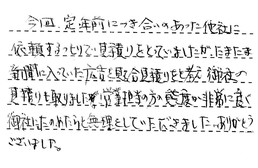 今回、定年前につき合いのあった他社に
依頼するつもりで見積りをとっていましたが、たまたま
新聞に入っていた広告を見て見積りをと考え 御社の
見積りも取りました。営業担当の方の態度が非常に良く
御社にたのめたらと無理をしていただきました。ありがとう
ございました。